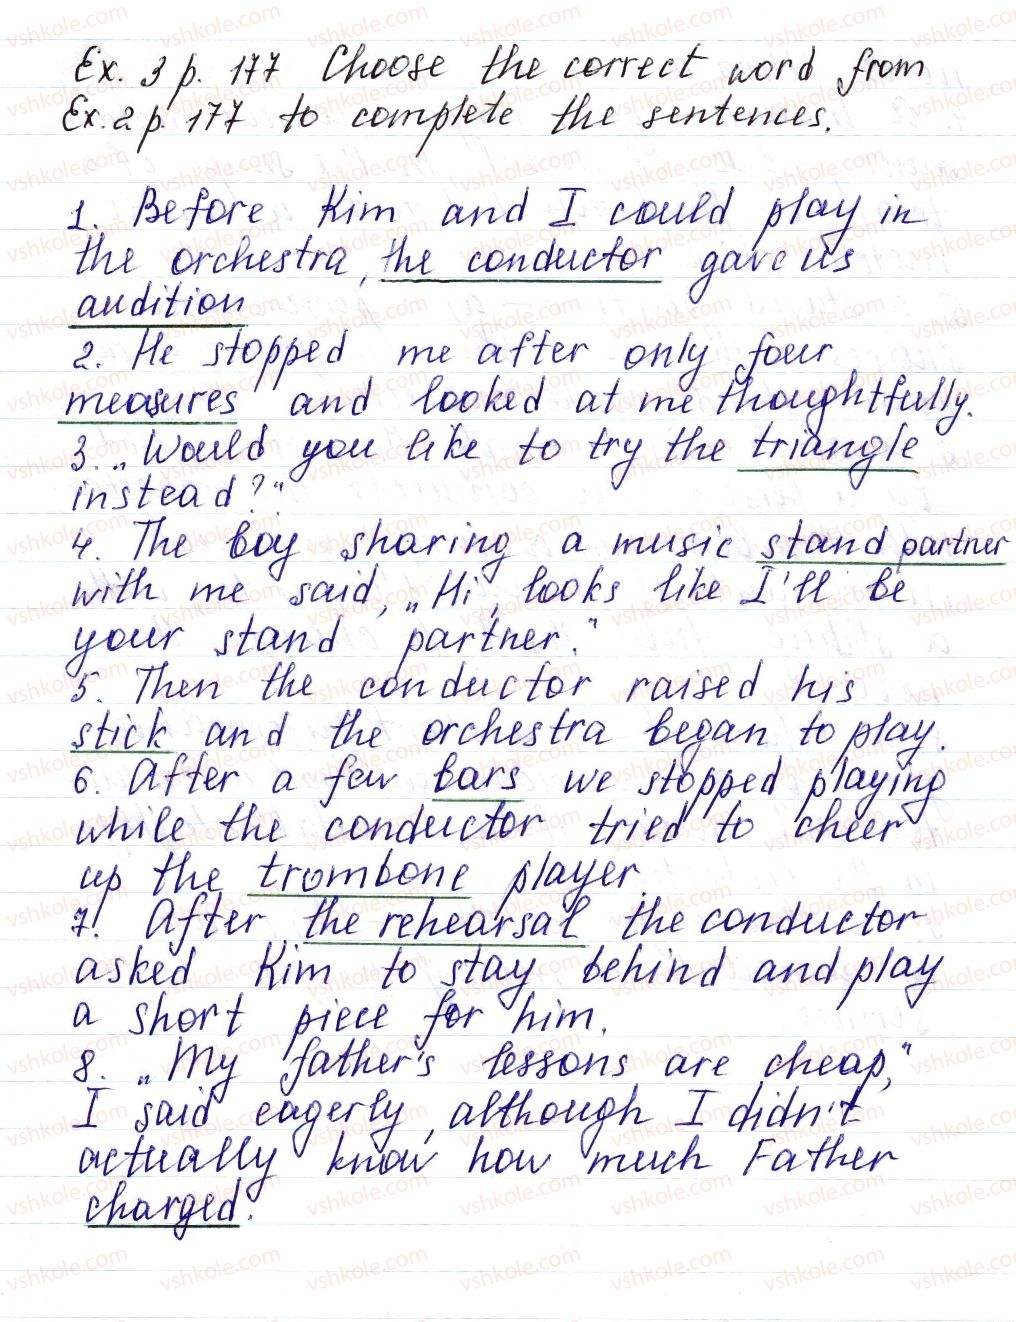 Ex. 3 p. 177 Choose the correct word from
Ex. 2 p. 177 to complete the sentences.
1. Before Kim and I could play in
the orchestra, the conductor gave us
audition
2. He stopped me after only four
measures and looked at me thoughtfully.
3. „Would you like to try the triangle
instead?"
4. The boy sharing a music stand partner
with me said, „Hi, looks like I'll be
your stand partner."
5. Then the conductor raised his
stick and the orchestra began to play.
6. After a few bars we stopped playing
while the conductor tried to cheer
up the trombone player.
7. After the rehearsal the conductor
asked Kim to stay behind and play
a short piece for him.
8. „My father's lessons are cheap,"
I said eagerly, although I didn't
actually know how much Father
charged.